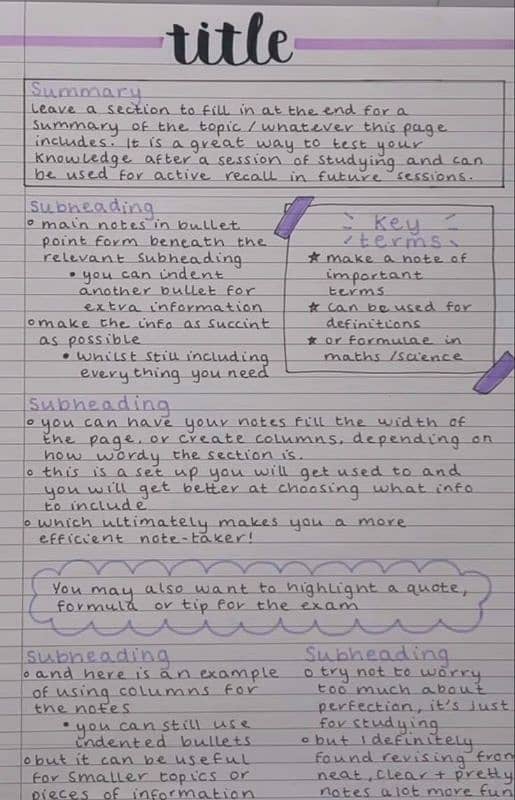 title
Summary
Leave a section to fill in at the end for a
summary of the topic / whatever this page
includes. It is a great way to test your
knowledge after a session of studying and can
be used for active recall in future sessions.
Subheading
main notes in bullet
point form beneath the
relevant subheading
• you can indent
another bullet for
extra information
make the info as succint
as possible
• whilst still including
everything you need
key
terms
★ make a note of
important
terms
★ can be used for
definitions
★ or formulae in
maths /science
Subheading
you can have your notes fill the width of
the page, or create columns, depending on
how wordy the section is.
this is a set up you will get used to and
you will get better at choosing what info
to include
which ultimately makes you a more
efficient note-taker!
You may also want to highlight a quote,
formula or tip for the exam
Subheading
and here is an example
of using columns for
the notes
• you can still use
indented bullets
but it can be useful
for smaller topics or
pieces of information
Subheading
try not to worry
too much about
perfection, it's just
for studying
but I definitely
found revising from
neat, clear + pretty
notes alot more fun